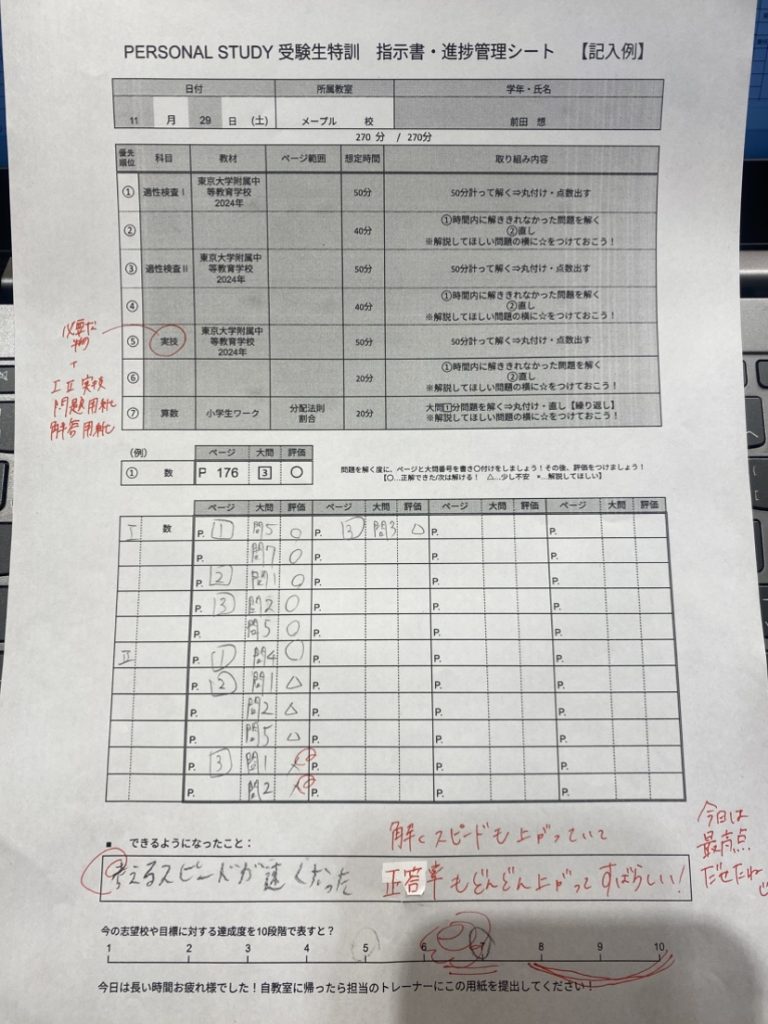 PERSONAL STUDY 受験生特訓 指示書・進捗管理シート 【記入例】
日付 所属教室 学年・氏名
11 月 29 日 (土) メープル 校 前田 想
270 分 / 270分
優先順位 科目 教材 ページ範囲 想定時間 取り組み内容
① 適性検査Ⅰ 東京大学附属中等教育学校 2024年 50分 50分計って解く⇒丸付け・点数出す
② 40分 ①時間内に解ききれなかった問題を解く
②直し
※解説してほしい問題の横に☆をつけておこう！
③ 適性検査Ⅱ 東京大学附属中等教育学校 2024年 50分 50分計って解く⇒丸付け・点数出す
④ 40分 ①時間内に解ききれなかった問題を解く
②直し
※解説してほしい問題の横に☆をつけておこう！
⑤ 実技 東京大学附属中等教育学校 2024年 50分 50分計って解く⇒丸付け・点数出す
⑥ 20分 ①時間内に解ききれなかった問題を解く
②直し
※解説してほしい問題の横に☆をつけておこう！
⑦ 算数 小学生ワーク 分配法則 割合 20分 大問1分問題を解く⇒丸付け・直し【繰り返し】
※解説してほしい問題の横に☆をつけておこう！
必要だ
+
Ⅰ Ⅱ 実技
問題用紙
解答用紙
(例) ページ 大問 評価
① 数 P 176 3 〇
問題を解く度に、ページと大問番号を書き〇付けをしましょう！その後、評価をつけましょう！
【〇…正解できた/次は解ける！ △…少し不安 ×…解説してほしい】
ページ 大問 評価 ページ 大問 評価 ページ 大問 評価 ページ 大問 評価
Ⅰ 数 P. 1 問5 〇 P. 3 問3 △ P. P.
P. 問7 〇 P. P. P.
P. 2 問1 〇 P. P. P.
P. 3 問2 〇 P. P. P.
P. 問5 〇 P. P. P.
Ⅱ P. 1 問4 〇 P. P. P.
P. 2 問1 △ P. P. P.
P. 問2 △ P. P. P.
P. 問5 △ P. P. P.
P. 3 問1 × P. P. P.
P. 問2 × P. P. P.
■ できるようになったこと：
考えるスピードが速くなった
解くスピードも上がっていて
正答率もどんどん上がってすばらしい！
今日は
最高点
だせたね
今の志望校や目標に対する達成度を10段階で表すと？
1 2 3 4 5 6 7 8 9 10
今日は長い時間お疲れ様でした！自教室に帰ったら担当のトレーナーにこの用紙を提出してください！